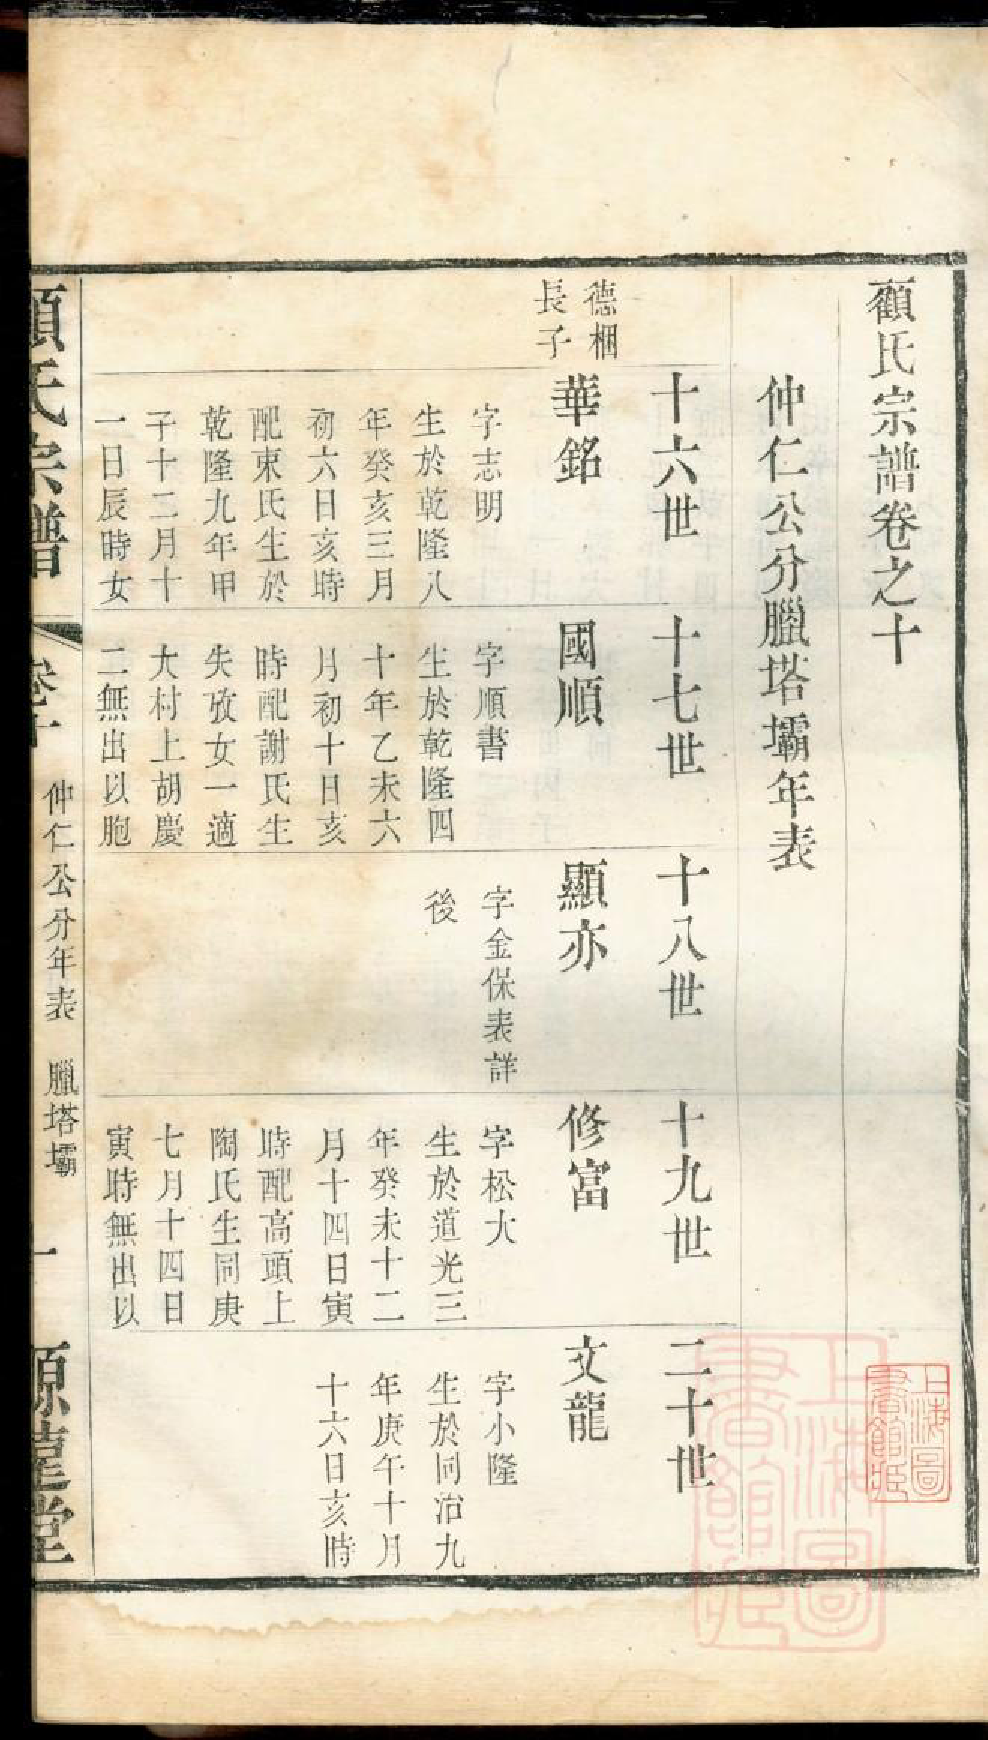 顧氏宗譜卷之十
仲仁公分臘塔壩年表
十六世
十七世
十八世
十九世
二十世
德梱
長子
華銘
字志明
生於乾隆八
年癸亥三月
初六日亥時
配東氏生於
乾隆九年甲
子十二月十
一日辰時女
國順
字順書
生於乾隆四
十年乙未六
月初十日亥
時配謝氏生
失攷女一適
大村上胡慶
二無出以胞
顯亦
字金保表詳
後
修富
字松大
生於道光三
年癸未十二
月十四日寅
時配高頭上
陶氏生同庚
七月十四日
寅時無出以
文龍
字小隆
生於同治九
年庚午十月
十六日亥時
顧氏宗譜
卷十
仲仁公分年表 臘塔壩
一
上海圖書館藏
上海圖書館藏